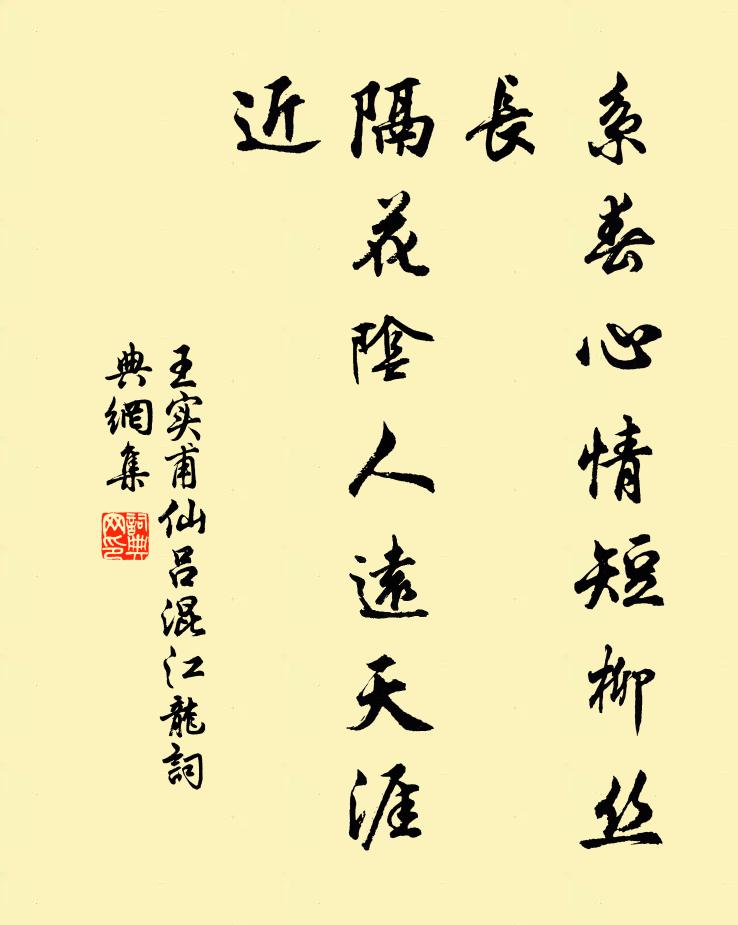 系春心情短柳丝
長
隔花陰人遠天涯
近
王实甫仙吕混江龍詞
典網集
詞典
网印